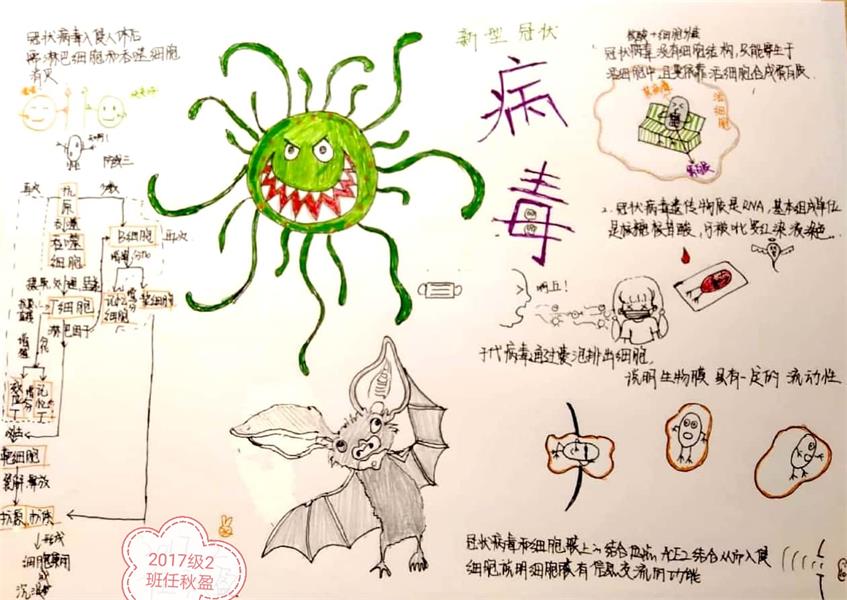 冠状病毒入侵人体后
消灭
防线三
再次
少数
抗原
刺激
吞噬
细胞
B细胞
再次
摄取、处理、呈递
T细胞
浆细胞
淋巴因子
记忆
细胞
靶细胞
裂解、释放
抗原
抗体
形成
沉淀
2017级2
班任秋盈
新型冠状
病毒
冠状病毒没有细胞结构，只能寄生于
活细胞中，且要依靠活细胞合成蛋白质.
活细胞
2.冠状病毒遗传物质是RNA，基本组成单位
是核糖核苷酸，可被吡罗红染液染色...
啊丘！
子代病毒通过囊泡排出细胞，
说明生物膜具有一定的流动性
冠状病毒和细胞膜上的结合热点ACE2结合从而入侵
细胞说明细胞膜有信息交流的功能